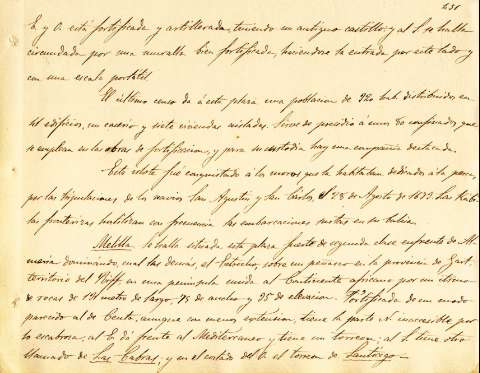 231
E. y O. está fortificada y artillerada, teniendo un antiguo castillo y al S. se halla
circundada por una muralla bien fortificada, haciendose la entrada por este lado y
con una escala portatil.
El último censo da á esta plaza una poblacion de 920 hab. distribuidos en
edificios, un caserio y siete viviendas aisladas. Sirve de presidio á unos confinados que
se emplean en las obras de fortificacion, y para su custodia hay una compañia destacada.
Este islote fué conquistado á los moros que lo habitaban dedicados á la pesca,
por las tripulaciones de los navios San Agustin y San Carlos, el 28 de Agosto de 1673. Las
fronterizas hostilizan con frecuencia las embarcaciones surtas en su bahia.
Melilla. Se halla situada esta plaza fuerte de segunda clase enfrente de Al-
meria dominando, cual las demás, el Estrecho, sobre un peñasco en la provincia de Gart.
territorio del Riff en una peninsula unida al Continente africano por un itsmo
de rocas de metros de largo, 75 de ancho y 95 de elevacion. Fortificada de un modo
parecido al de Ceuta, aunque con menos extension, tiene la parte N. inaccesible por
lo escabrosa, al E. dá frente al Mediterráneo y tiene un torreon; al S. tiene otro
llamado de Las Cabras, y en el costado del O. el torreon de Santiago.-